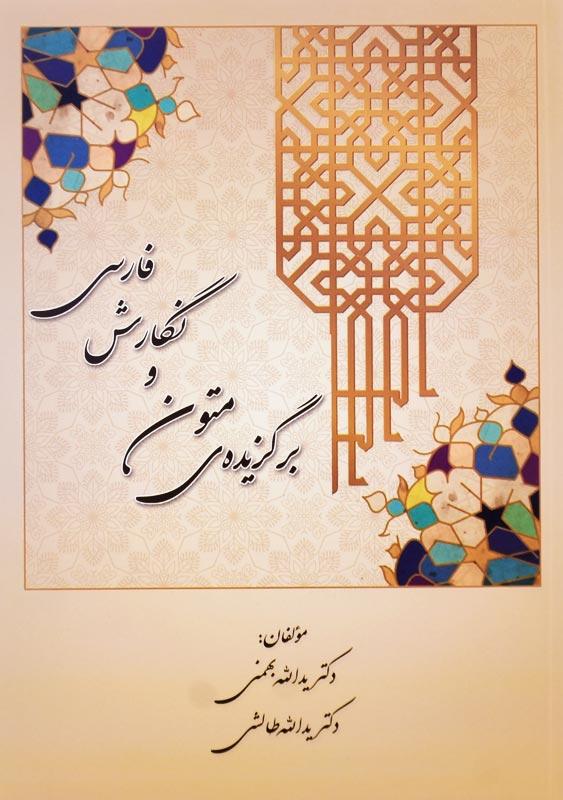 برگزیده‌ی
متون
و
نگارش
فارسی
مؤلفان:
دکتر یدالله بهمنی
دکتر یدالله طالشی